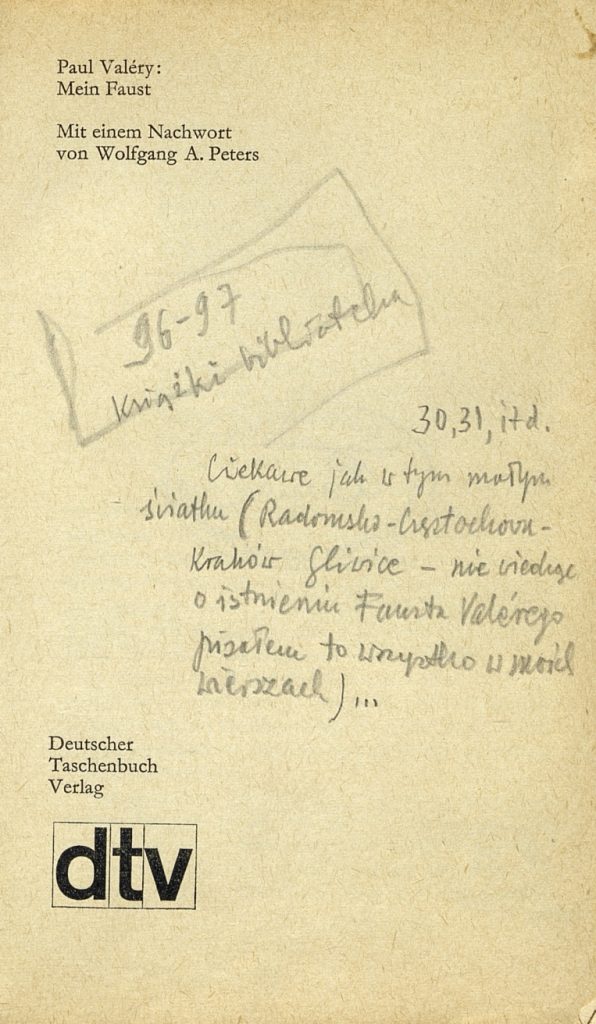 Paul Valéry:
Mein Faust
Mit einem Nachwort
von Wolfgang A. Peters
96-97
książki biblioteka
30, 31, itd.
Ciekawe jak w tym małym
światku (Radomsko-Częstochowa-
Kraków Gliwice – nie wiedząc
o istnieniu Fausta Valérego
pisałem to wszystko w moich
wierszach)...
Deutscher
Taschenbuch
Verlag
dtv